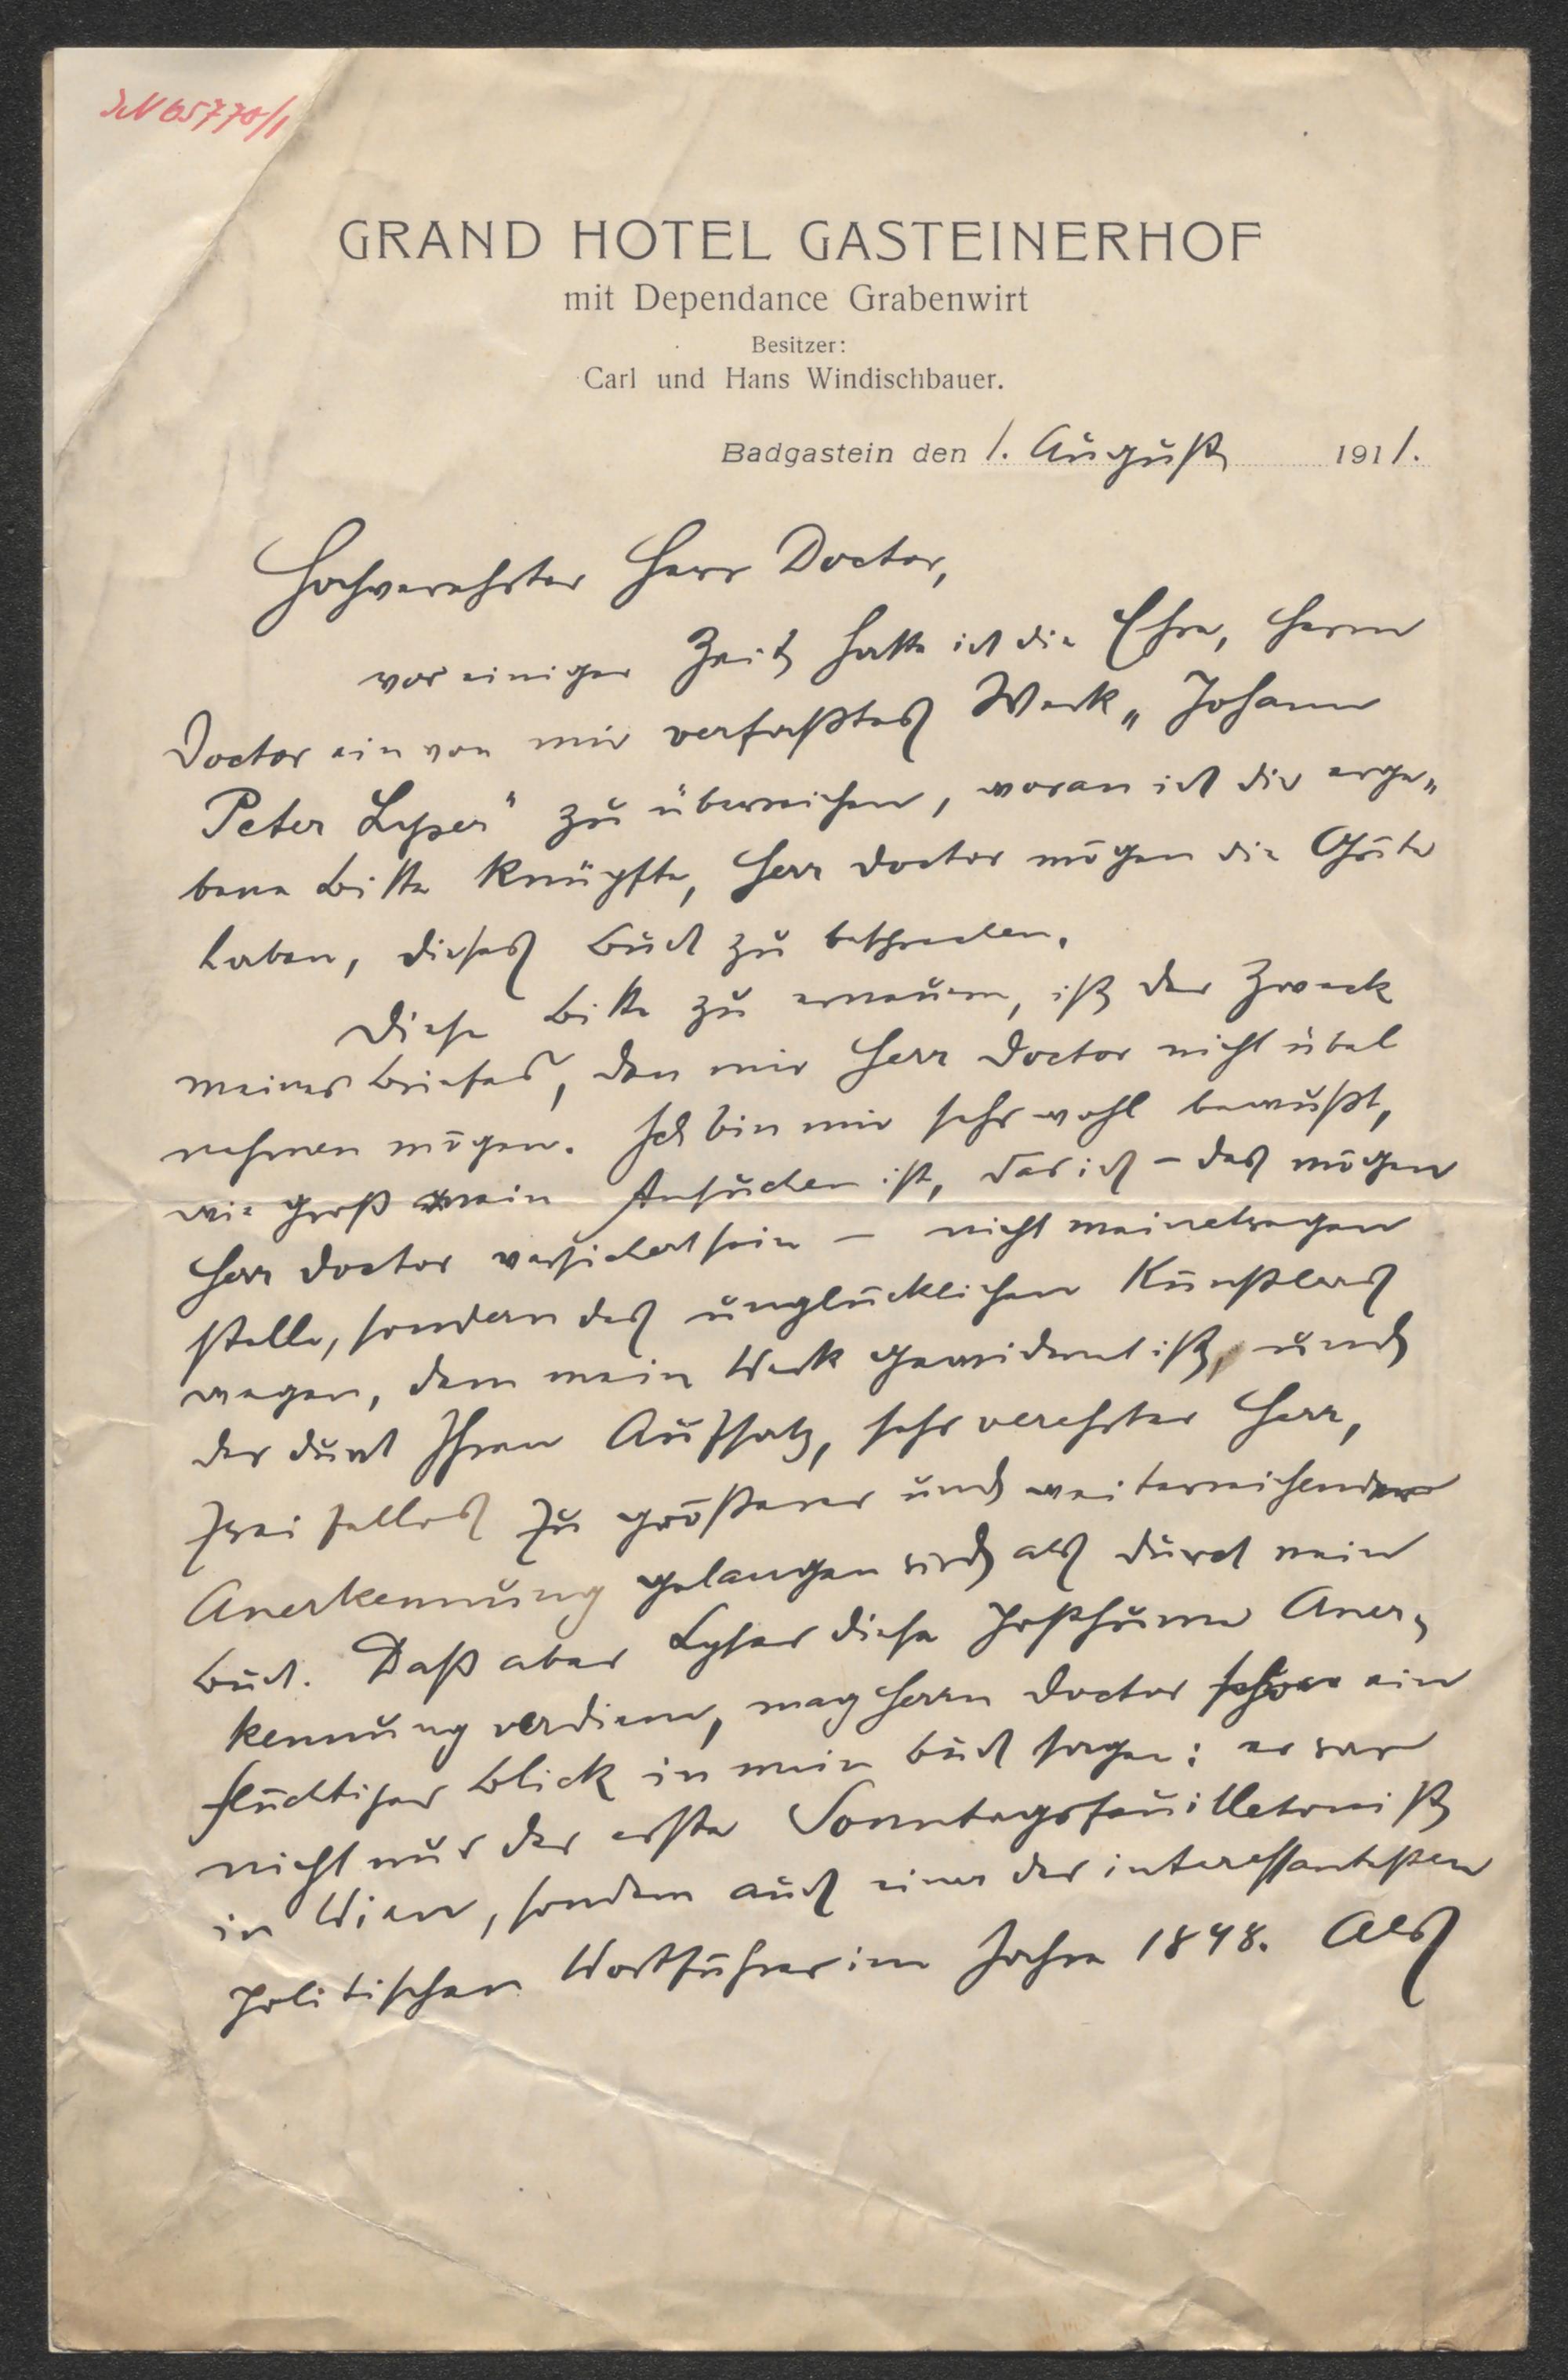 JN 65770/1
GRAND HOTEL GASTEINERHOF
mit Dependance Grabenwirt
Besitzer:
Carl und Hans Windischbauer.
Badgastein den 1. August 1911.
Hochverehrter Herr Doctor,
vor einiger Zeit hatte ich die Ehre, Herrn
Doctor ein von mir verfaßtes Werk „Johann
Peter Lyser" zu überreichen, woran ich die erge„
bene Bitte knüpfte, Herr Doctor mögen die Güte
haben, dieses Buch zu besprechen.
Diese Bitte zu erneuern, ist der Zweck
meines Briefes, den mir Herr Doctor nicht übel
nehmen mögen. Ich bin mir sehr wohl bewußt,
wie groß mein Ansuchen ist, das ich – des mögen
Herr Doctor versichert sein – nicht meinetwegen
stelle, sondern des unglücklichen Künstlers
wegen, dem mein Werk gewidmet ist, und
der durch Ihren Aufsatz, sehr verehrter Herr,
zweifellos zu größerer und weiterreichender
Anerkennung gelangen wird als durch mein
Buch. Daß aber Lyser diese posthume Aner„
kennung verdient, mag Herrn Doctor schon ein
flüchtiger Blick in mein Buch sagen: er war
nicht nur der erste Sonntagsfeuilletonist
in Wien, sondern auch einer der interessantesten
politischen Wortführer im Jahre 1848. Als